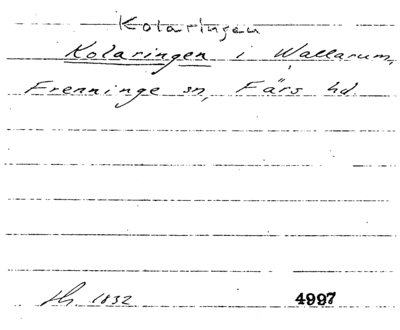 Kolaringen
Kolaringen i Wallarum,
Frenninge sn, Färs hd
Hs. 1832 4997